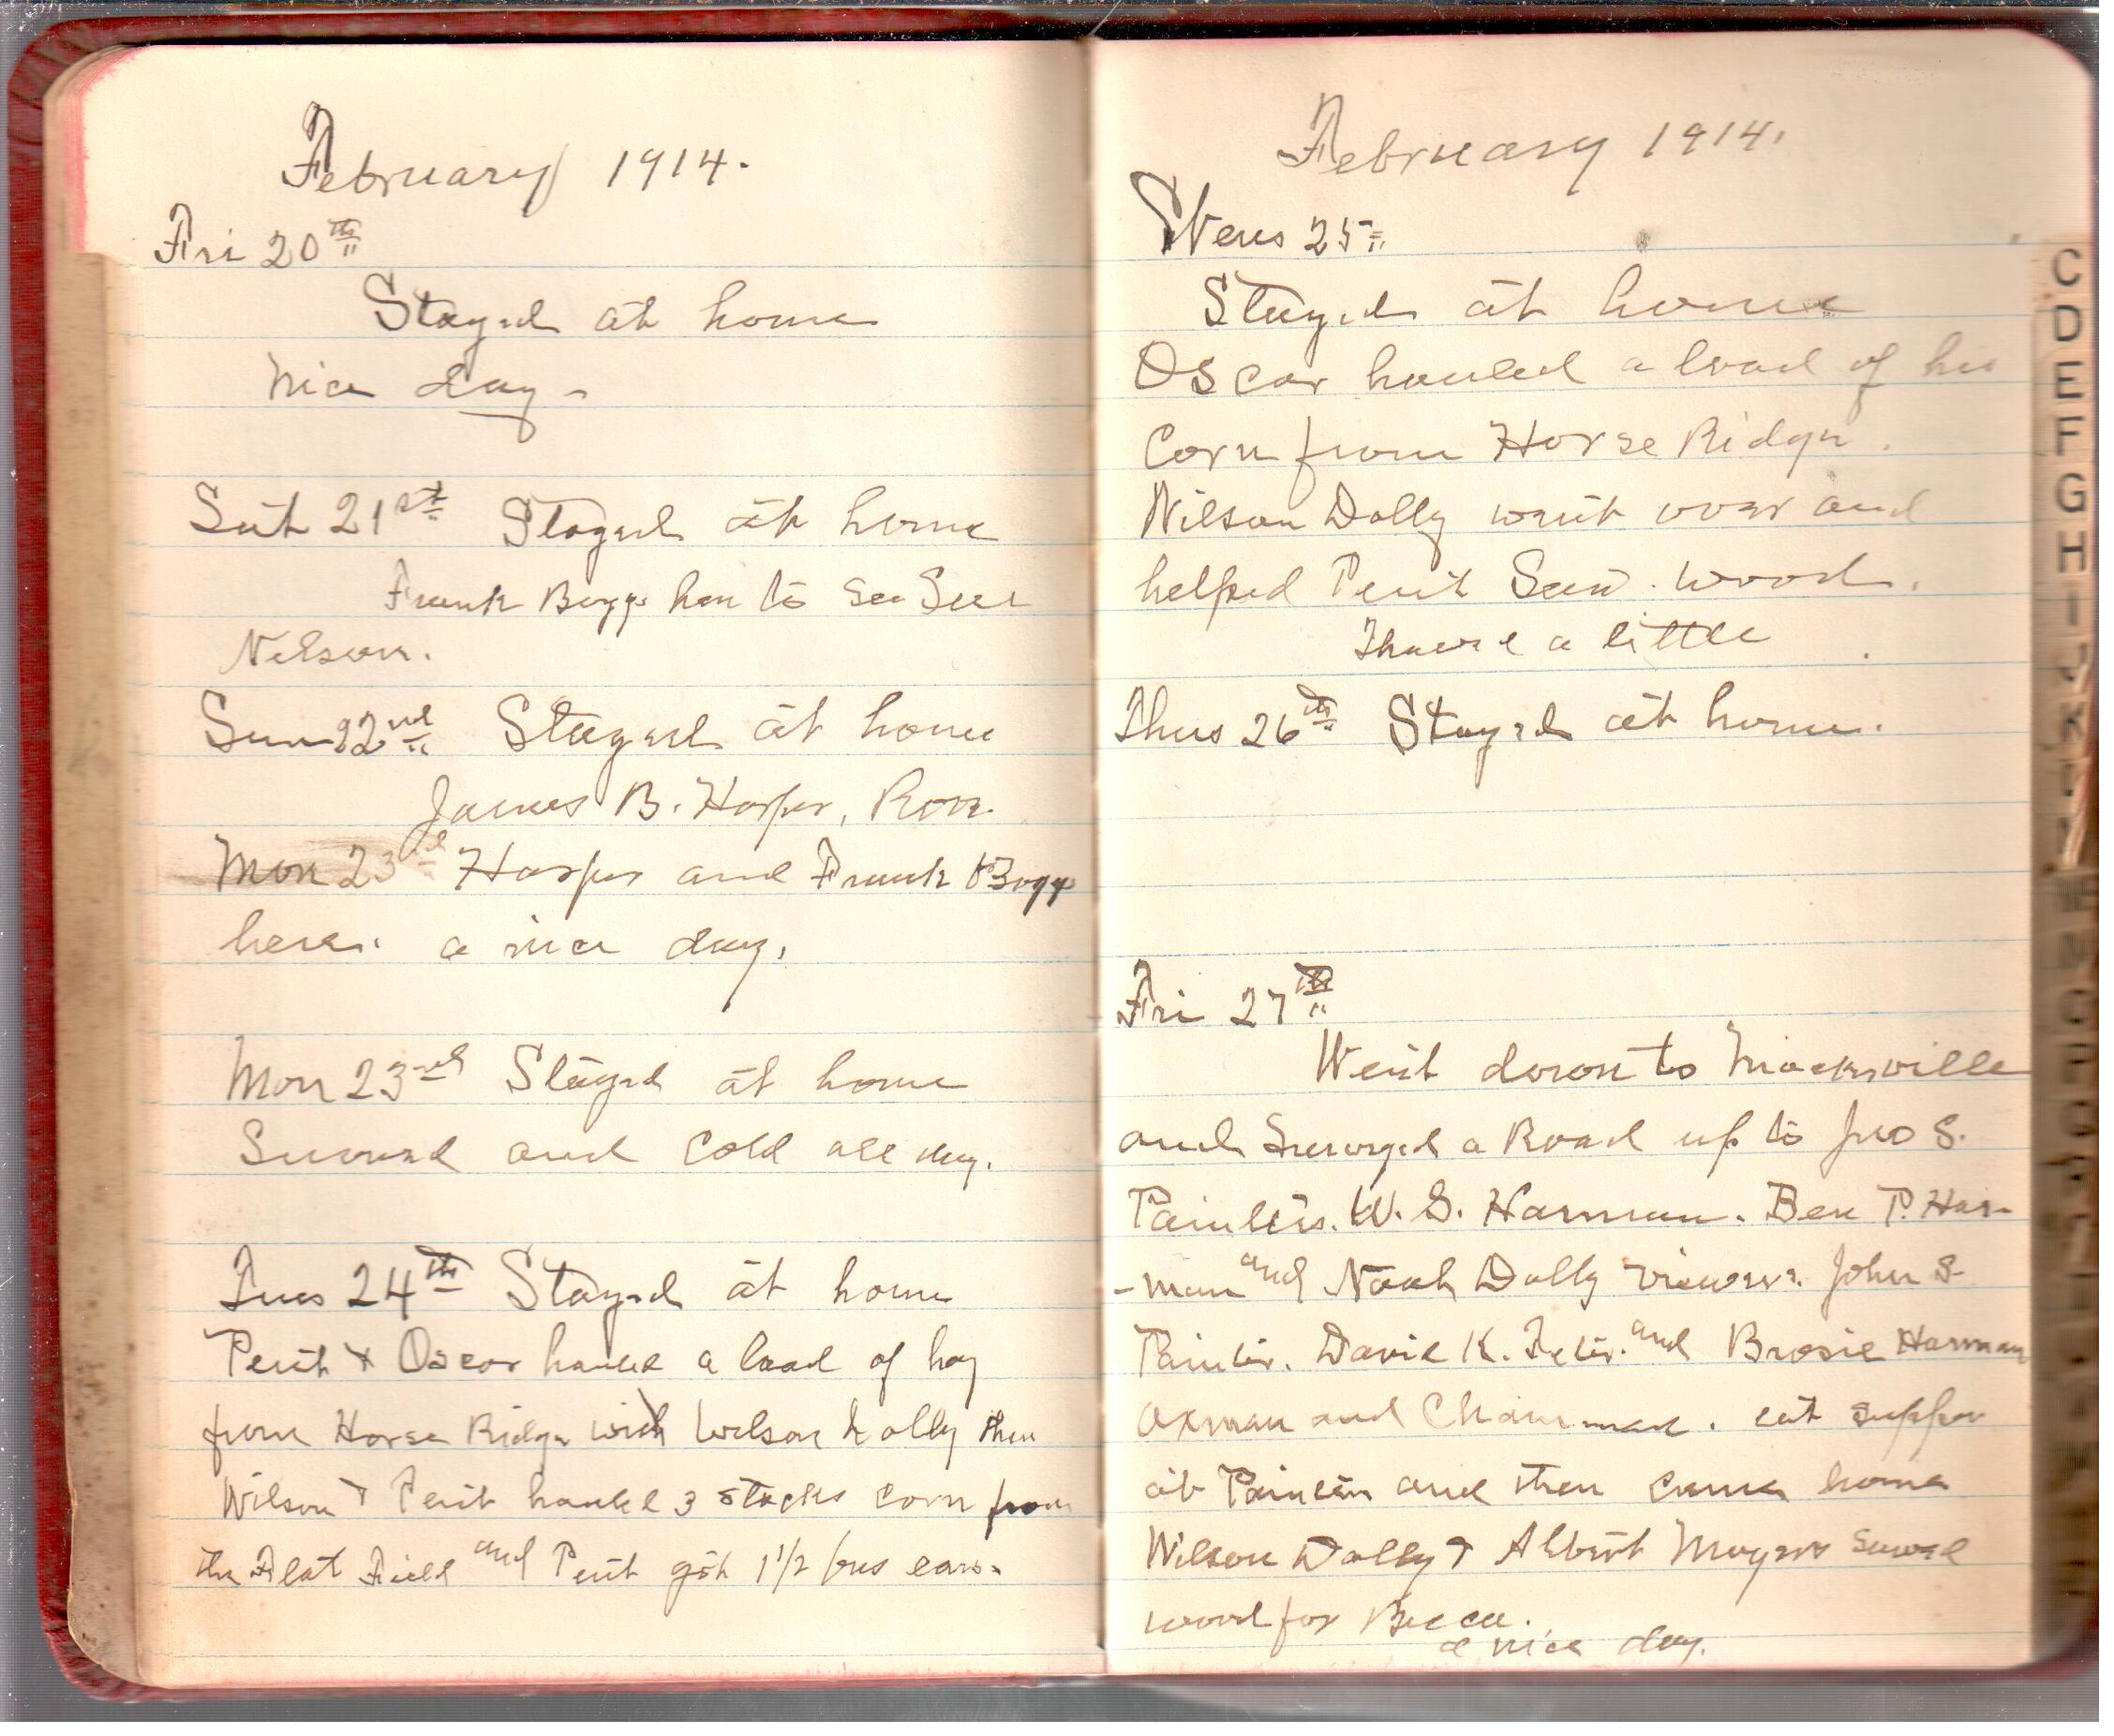 February 1914.
Fri 20th
Stayed at home
Nice day -
Sat 21st Stayed at home
Frank Boggs hear to see
Nelson.
Sun 22nd Stayed at home
James B. Harper, Roy
Mon 23rd Harper and Frank Bogg
here. a nice day.
Mon 23rd Stayed at home
Snowed and cold all day.
Tues 24th Stayed at home
Perit & Oscar hauled a load of hay
from Horse Ridge with Wilson Dolly then
Wilson & Perit hauled 3 stacks corn from
the Flat Field and Perit got 1 1/2 bus ears.
February 1914.
Wens 25
Stayed at home
Oscar hauled a load of his
Corn from Horse Ridge.
Wilson Dolly went over and
helped Perit Saw wood.
Thawed a little
Thus 26th Stayed at home.
Fri 27th
Went down to Macksville
and Surveyed a Road up to Jno S.
Painters. W. S. Harman. Ben P. Har-
-man and Noah Dolly viewers. John S
Painter. David K. and Brosie Harman
axman and Chainman. eat supper
at Painters and then came home
Wilson Dolly & Albert Moyers sawed
wood for Becca.
a nice day.
C
D
E
F
G
H
I
J
K